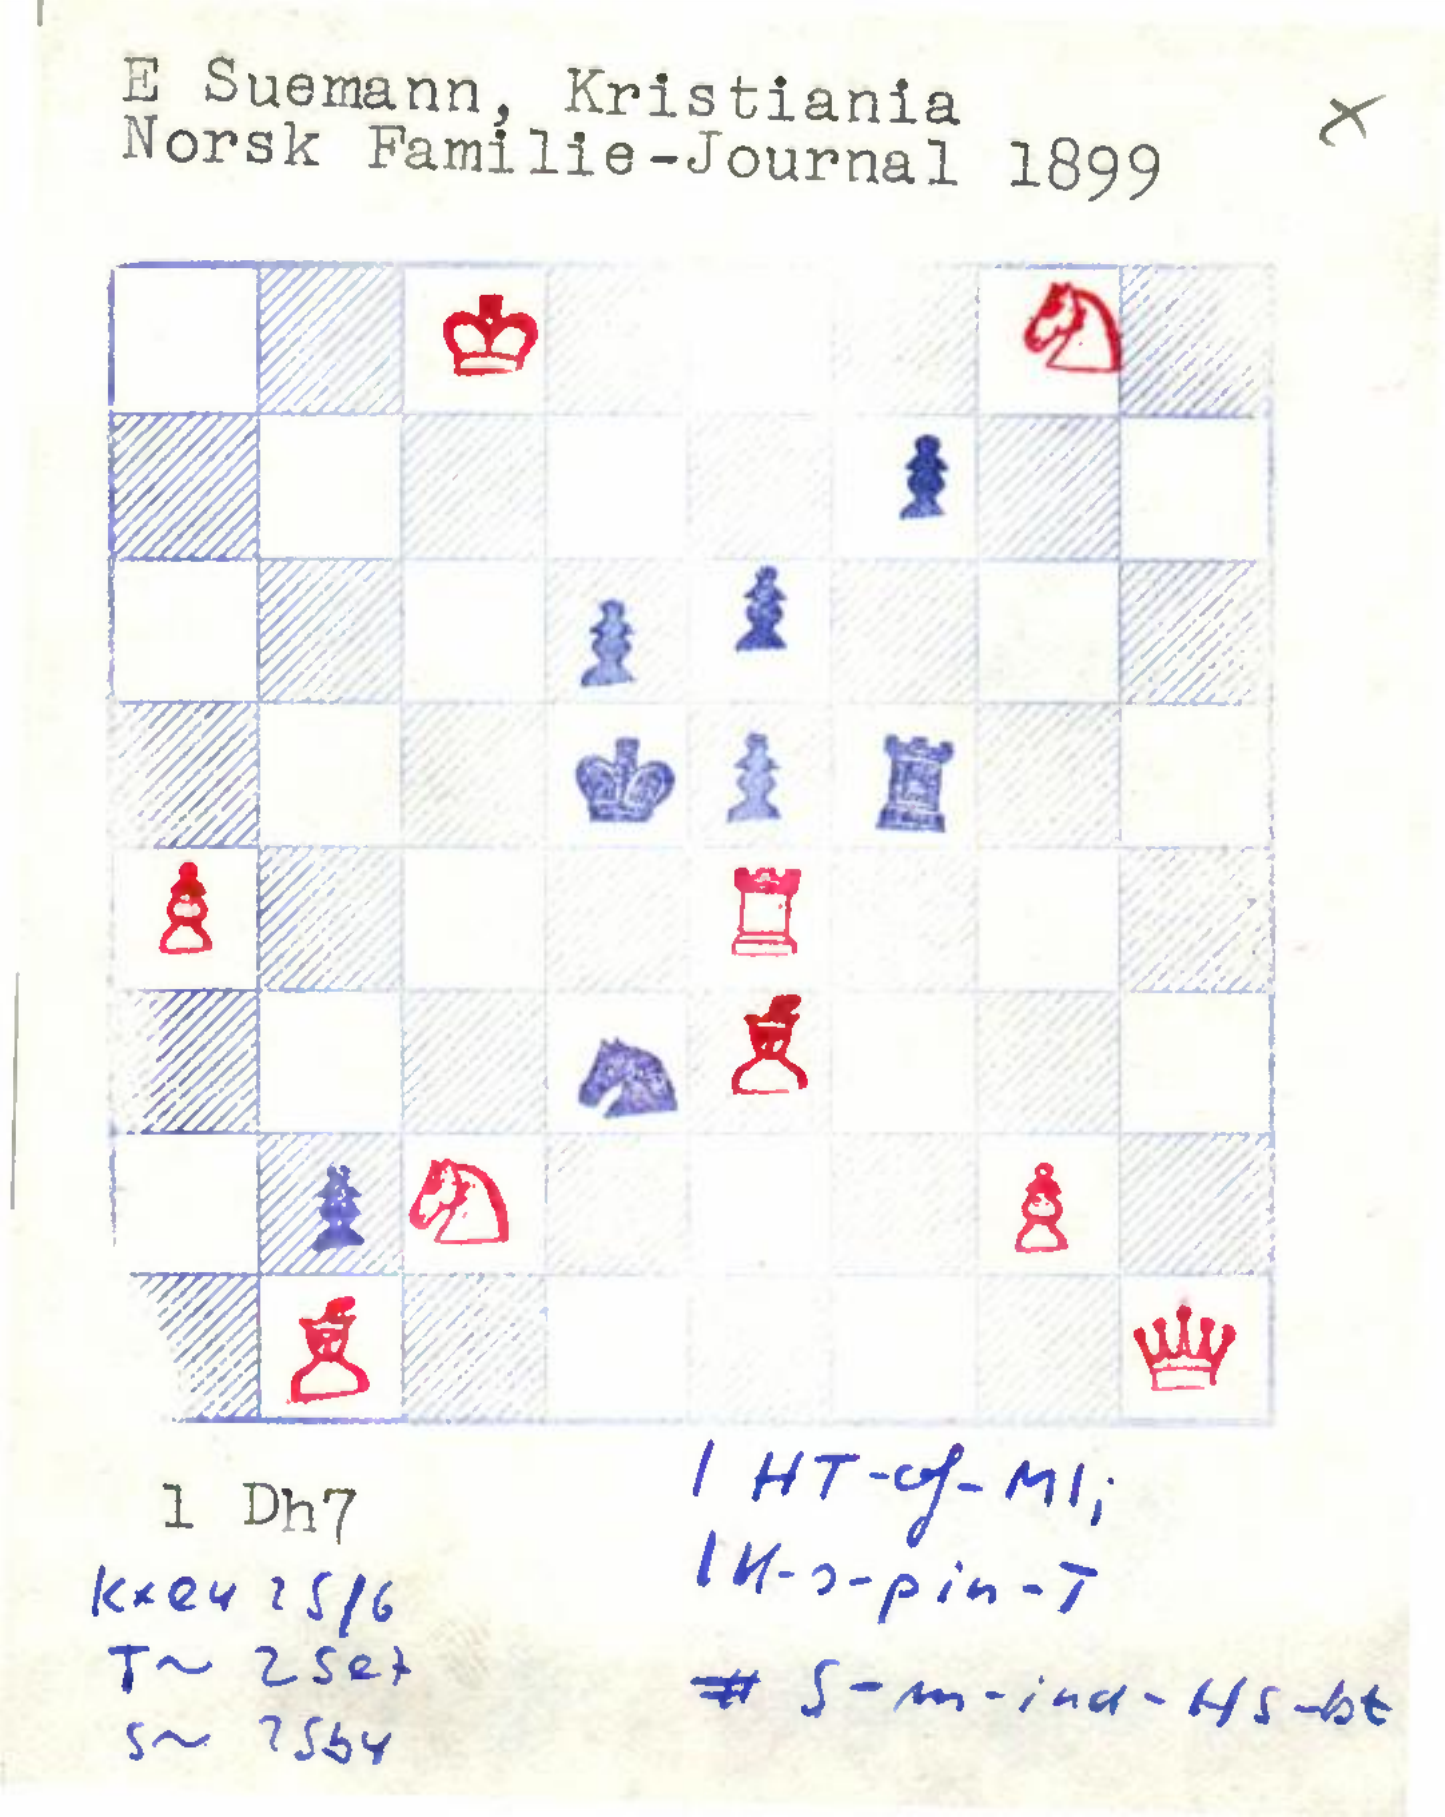 E Suemann, Kristiania
Norsk Familie-Journal 1899
x
1 Dh7
Kxe4 2Sf6
T~ 2Se7
S~ 2Sb4
1 HT-of-Ml;
1K-s-pin-T
# S-m-ind-HS-bt